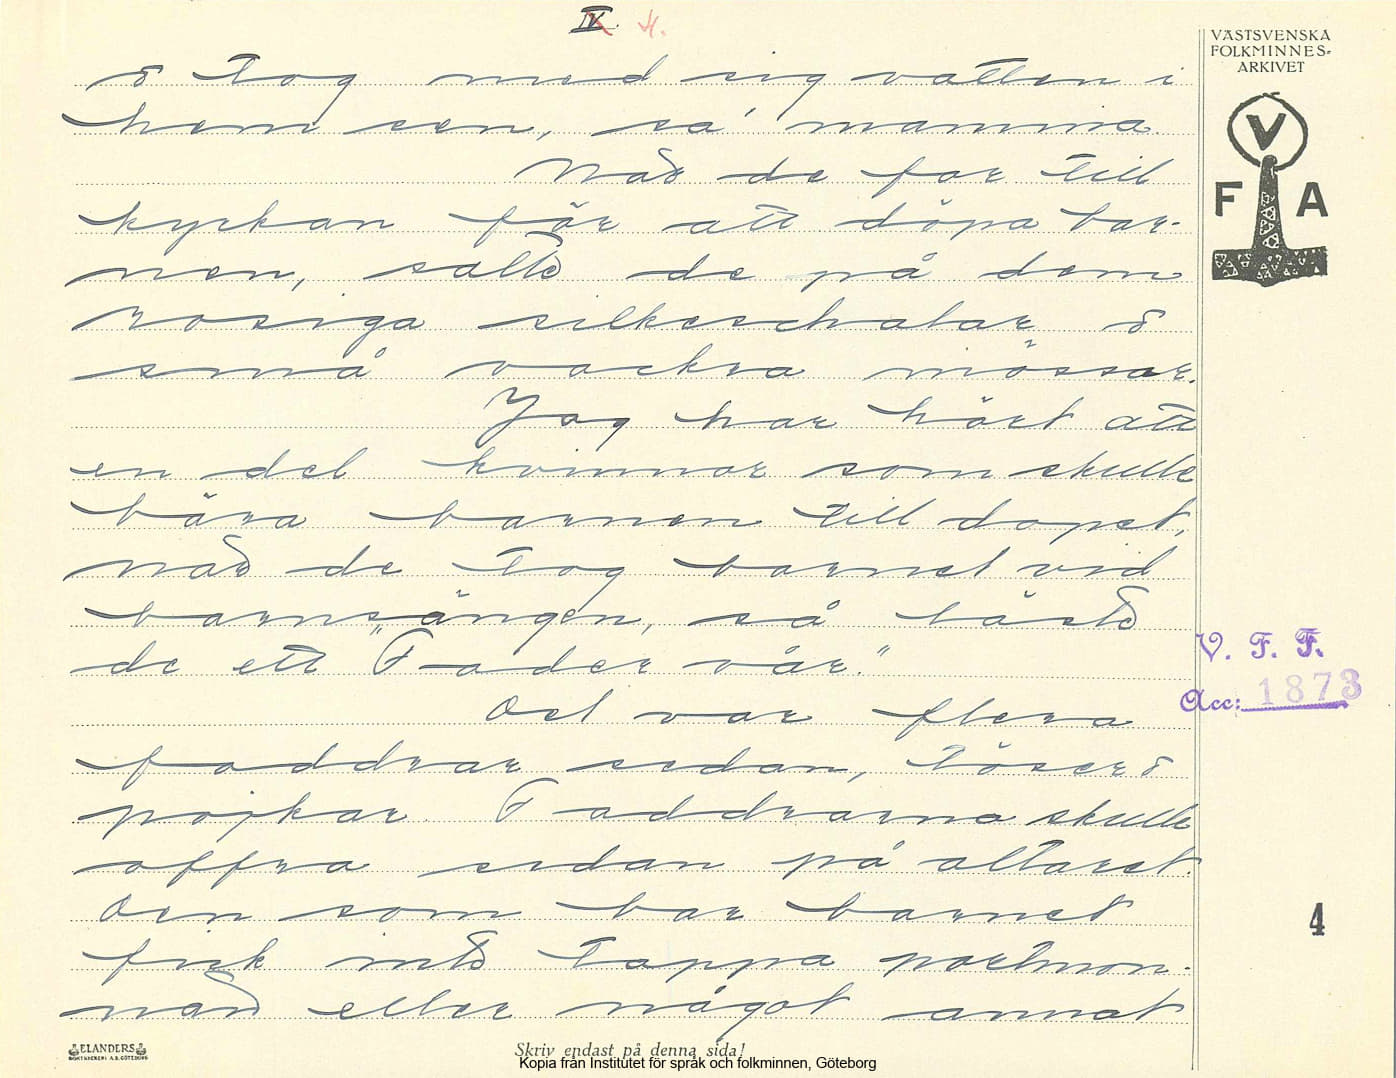 IV. 4.
VÄSTSVENSKA
FOLKMINNES-
ARKIVET
V
F A
o tog med sig vatten i
hem sen, sa' mamma.
När de for till
kyrkan för att döpa bar-
nen, satte de på dem
rosiga silkeschalar o
små vackra mössor.
Jag har hört att
en del kvinnor som skulle
bära barnen till dopet,
när de tog barnet vid
barnsängen, så läste
de ett "Fader vår."
Det var flera
faddrar sedan, töser o
pojkar. Faddrarna skulle
offra sedan på altaret.
Den som bar barnet
fick inte tappa portmon-
nän eller något annat
V. F. F.
Acc: 1873
4
ELANDERS
BOKTRYCKERI A.B. GÖTEBORG
Skriv endast på denna sida!
Kopia från Institutet för språk och folkminnen, Göteborg